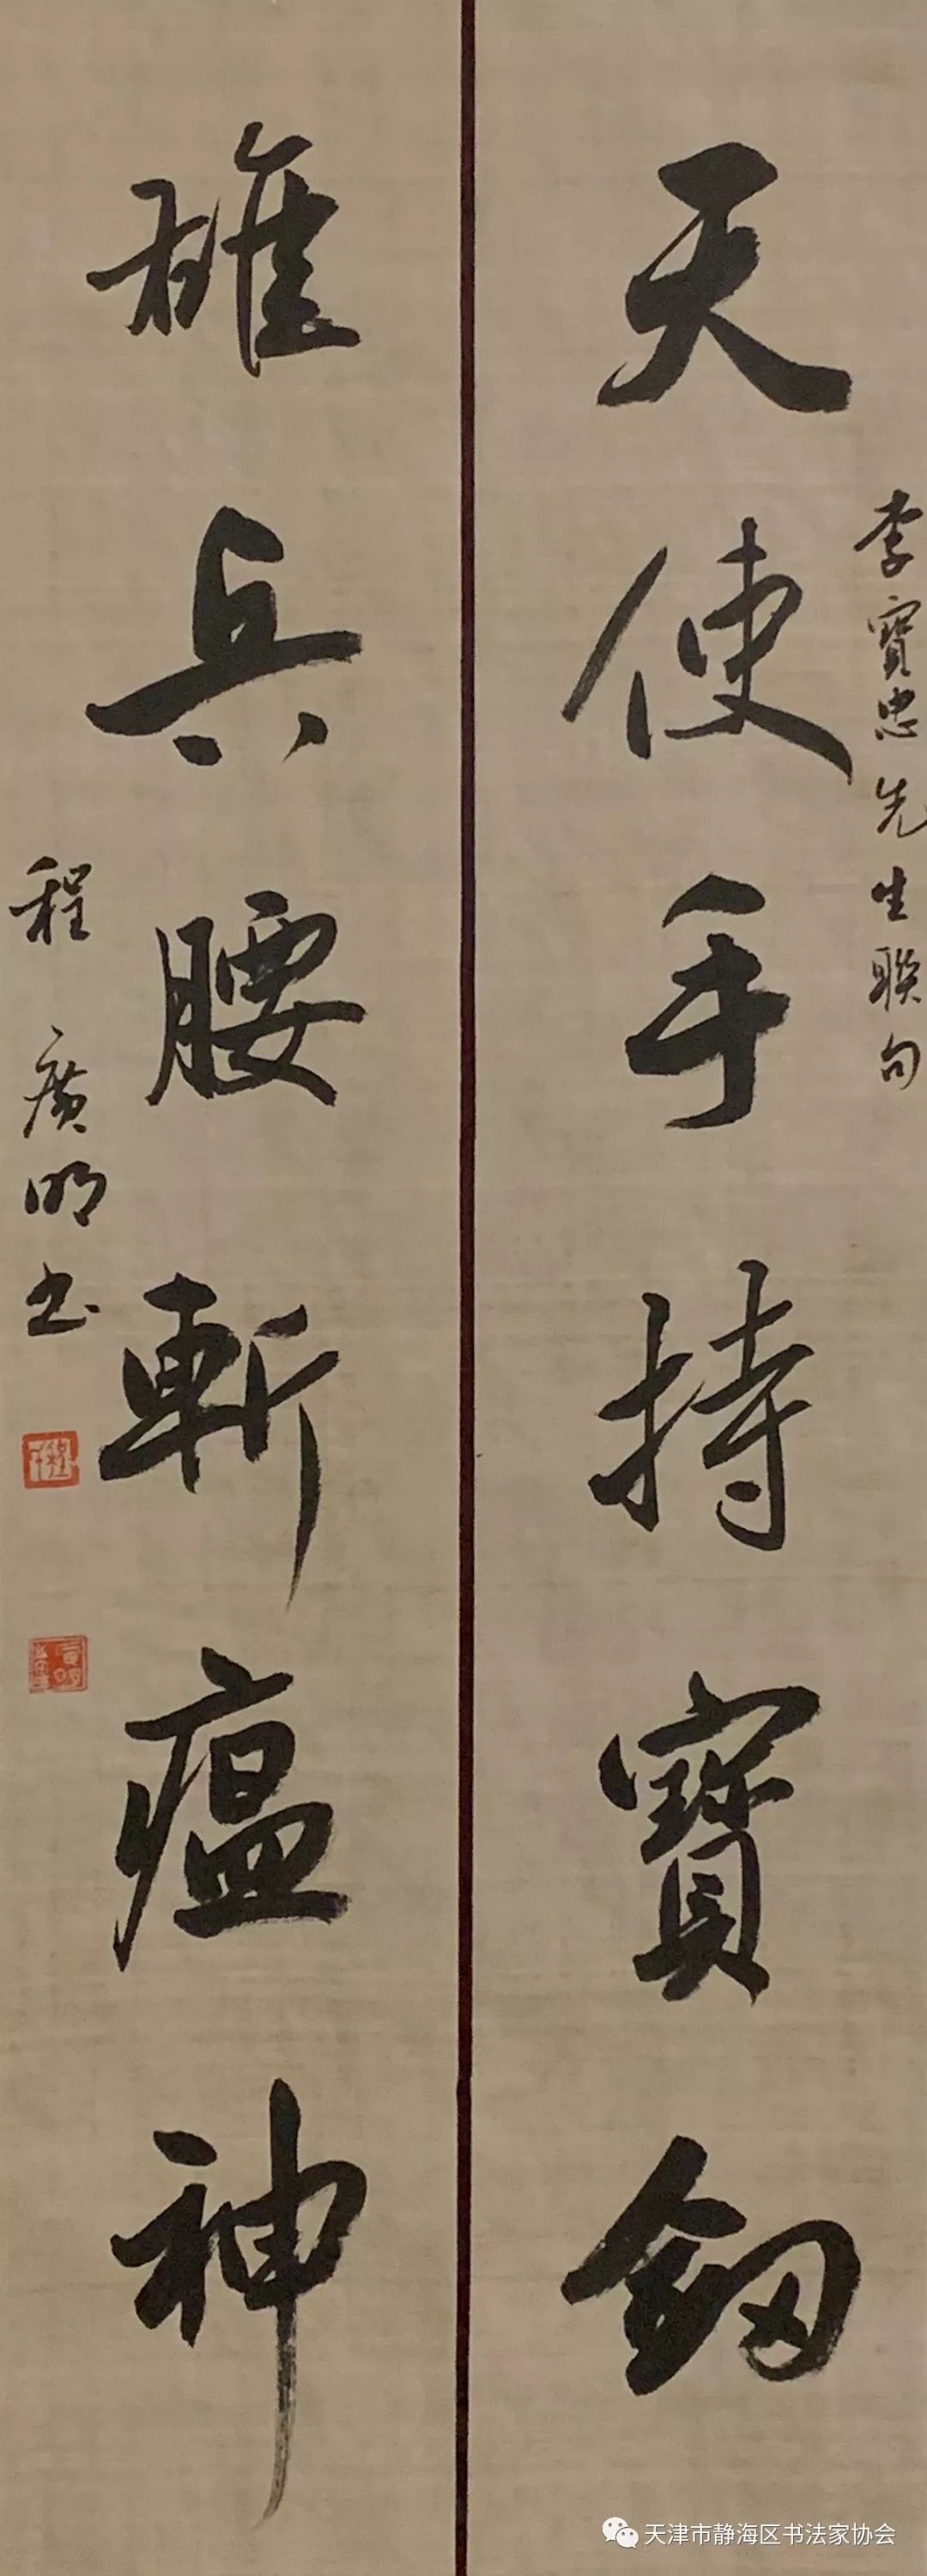 李寶忠先生聯句
天使手持寶劒
雄兵腰斬瘟神
程廣明书
天津市静海区书法家协会